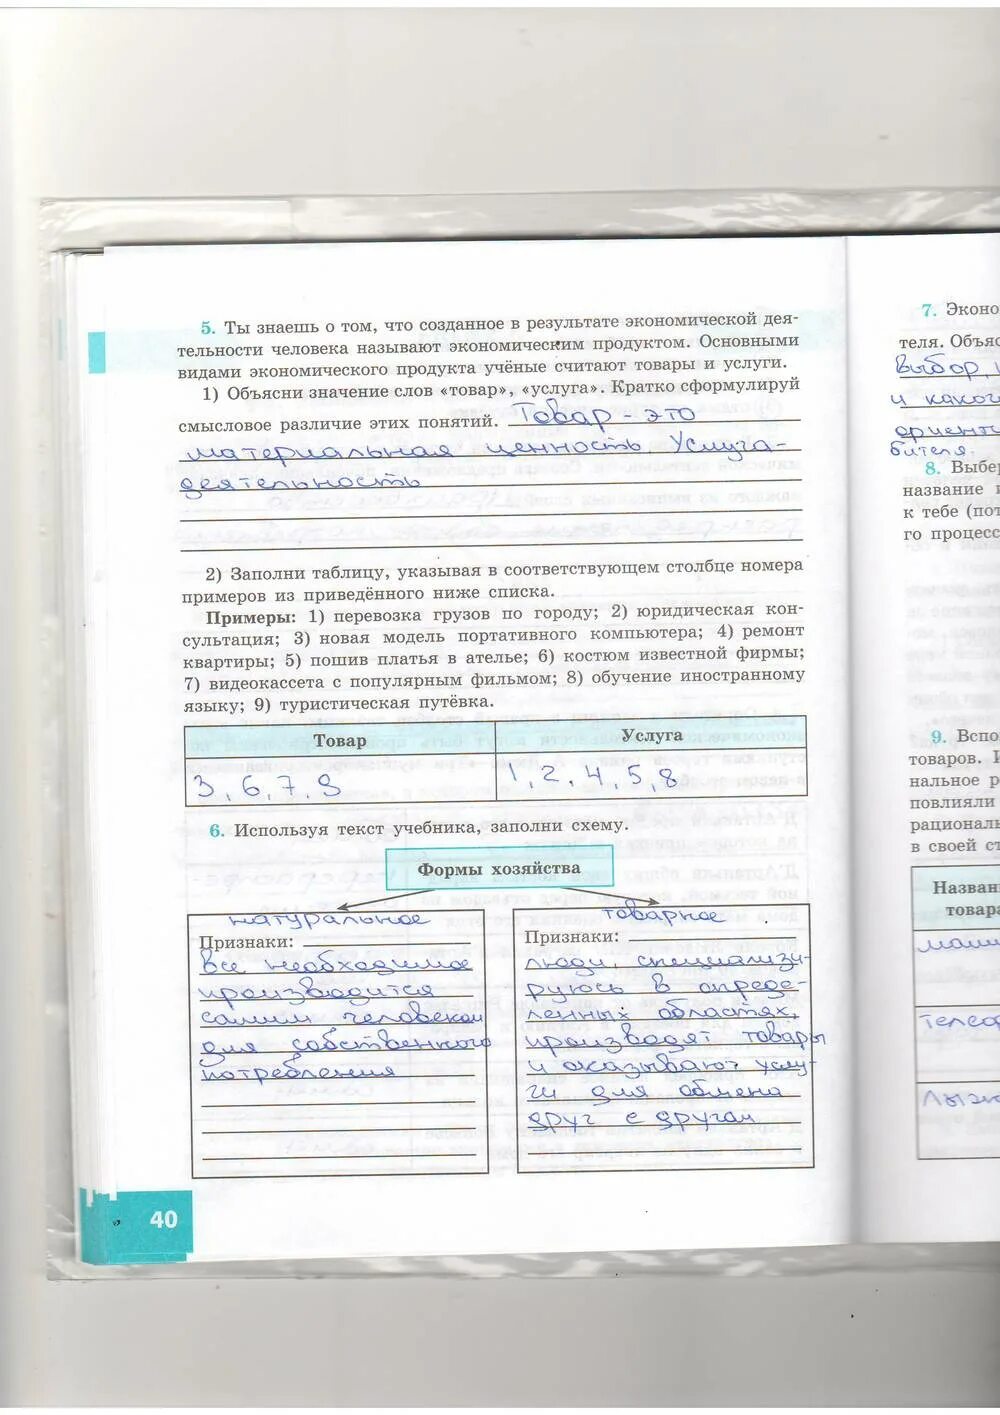 5. Ты знаешь о том, что созданное в результате экономической дея-
тельности человека называют экономическим продуктом. Основными
видами экономического продукта учёные считают товары и услуги.
1) Объясни значение слов «товар», «услуга». Кратко сформулируй
смысловое различие этих понятий. Товар - это
материальная ценность. Услуга-
деятельность
2) Заполни таблицу, указывая в соответствующем столбце номера
примеров из приведённого ниже списка.
Примеры: 1) перевозка грузов по городу; 2) юридическая кон-
сультация; 3) новая модель портативного компьютера; 4) ремонт
квартиры; 5) пошив платья в ателье; 6) костюм известной фирмы;
7) видеокассета с популярным фильмом; 8) обучение иностранному
языку; 9) туристическая путёвка.
Товар Услуга
3, 6, 7, 9 1, 2, 4, 5, 8
6. Используя текст учебника, заполни схему.
Формы хозяйства
натуральное
Признаки:
все необходимое
производится
самим человеком
для собственного
потребления
товарное
Признаки:
люди, специализи-
руюсь в опреде-
ленных областях,
производят товары
и оказывают услу-
ги для обмена
друг с другом
40
7. Эконо
теля. Объяс
выбор
и каког
ориенти
бителя.
8. Выбер
название и
к тебе (пот
го процесс
9. Вспо
товаров. И
нальное р
повлияли
рациональ
в своей ст
Названи
товара
маши
телеф
лыж